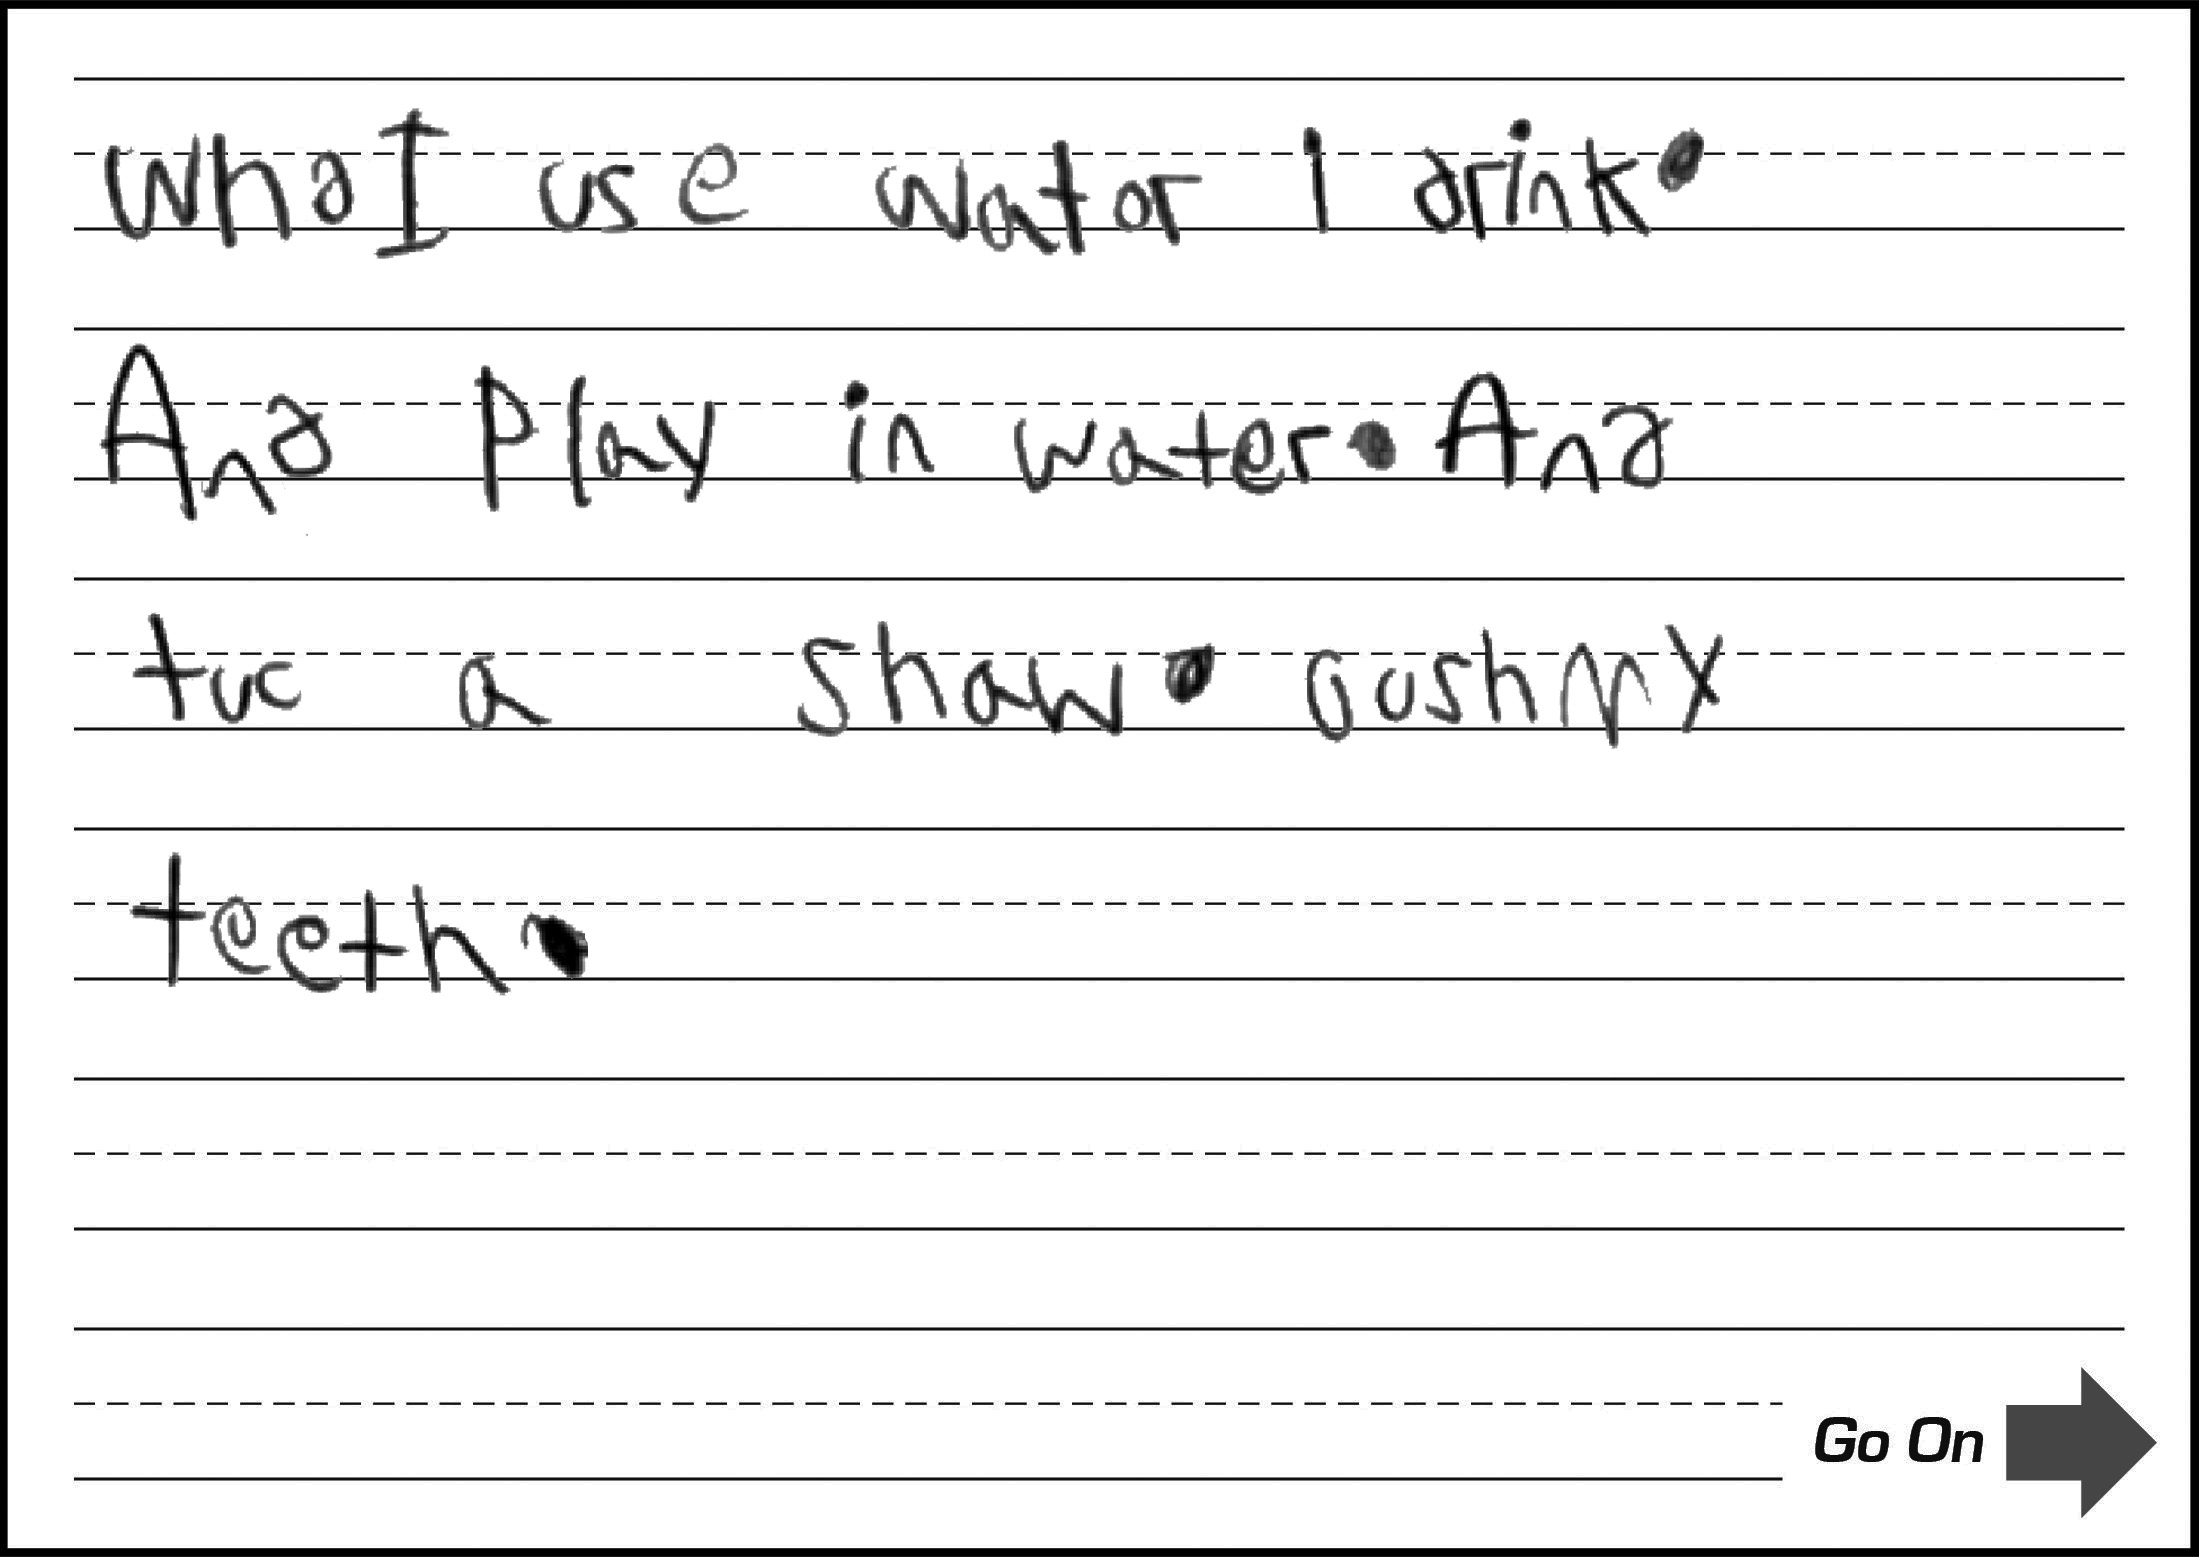 wha I use wator I drink.
And Play in water. And
tuc a shaw. oushmy
teeth.
Go On